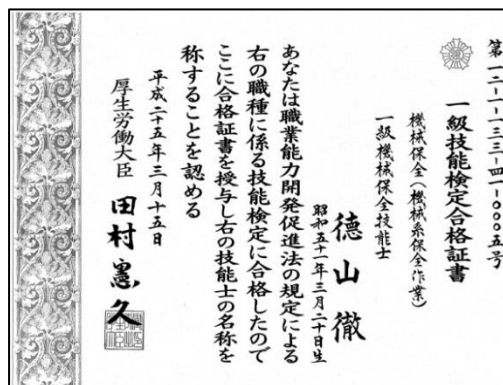 第一二-一-一三三-四一-〇〇〇五号
一級技能検定合格証書
機械保全(機械系保全作業)
一級機械保全技能士
徳山徹
昭和五十一年三月二十日生
あなたは職業能力開発促進法の規定による
右の職種に係る技能検定に合格したので
ここに合格証書を授与し右の技能士の名称を
称することを認める
平成二十五年三月十五日
厚生労働大臣 田村憲久